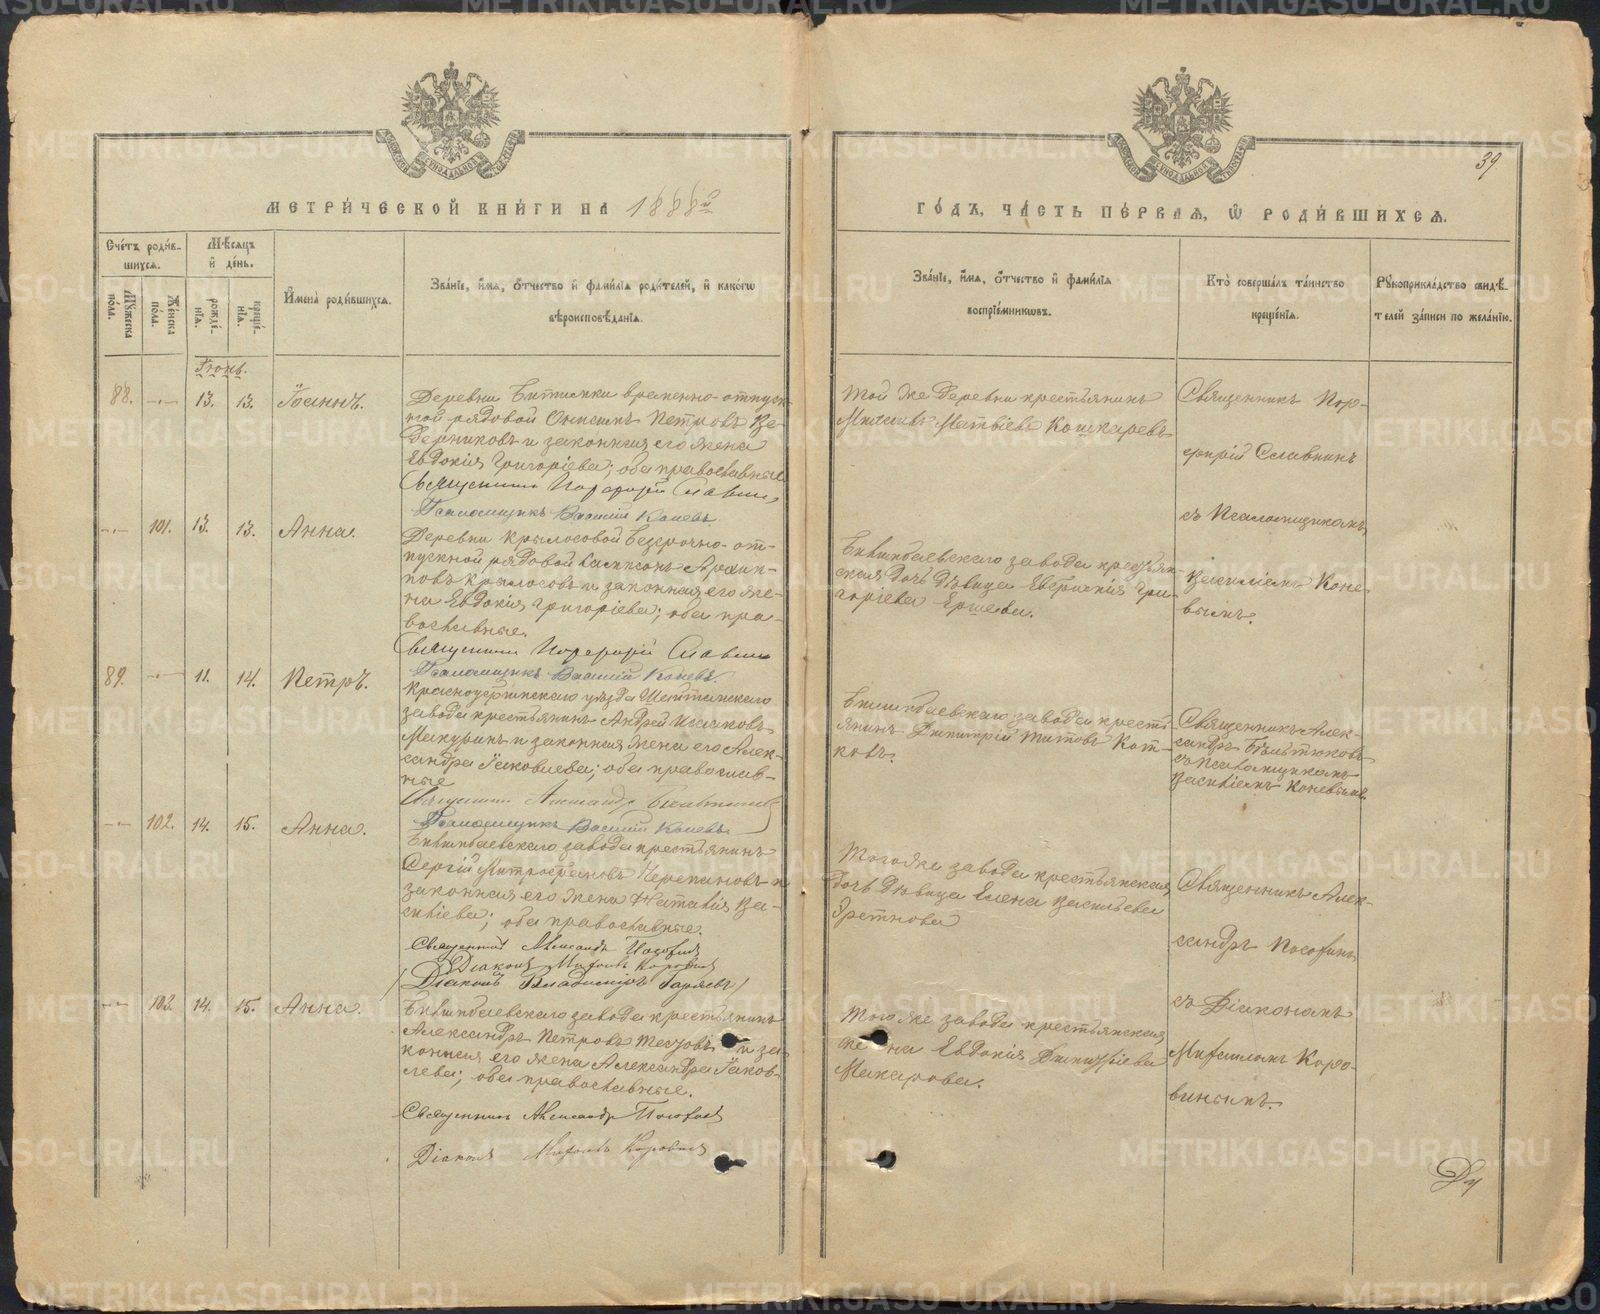 МЕТРИ́ЧЕСКОЙ КНИ́ГИ НА 1888й
ГО́ДЪ, ЧА́СТЬ ПЕ́РВАЯ, Ѽ РОДИ́ВШИХСЯ.
39
Сче́тъ роди́в-
шихся.
Мѣ́сяцъ
и҆ де́нь.
Мꙋ́жеска по́ла.
Же́нска по́ла.
рожде́нїѧ.
креще́нїѧ.
И҆мена̀ роди́вшихся.
Зва́нїе, и҆́мя, ѻ҆́тчество и҆ фами́лїя роди́телей, и҆ како́гѡ
вѣроисповѣ́данїя.
Зва́нїе, и҆́мя, ѻ҆́тчество и҆ фами́лїя
воспрїе́мникѡвъ.
Кто̀ соверша́лъ та́инство
креще́нїя.
Рꙋкоприкла́дство свидѣ́-
телей за́писи по жела́нїю.
Іюнь.
88. 13. 13. Іоаннъ.
Деревни Битимки временно-отпуск-
ной рядовой Онисимъ Петровъ Ве-
дерниковъ и законная его жена
Евдокія Григоріева; оба православные
Священникъ Порфирій Славнинъ
Псаломщикъ Василій Коневъ
Той же деревни крестьянинъ
Матвѣевъ Кошкаревъ
Священникъ Пор-
фирій Славнинъ
съ Псаломщикомъ
Василіемъ Коне-
вымъ.
101. 13. 13. Анна.
Деревни Крылосовой безсрочно-от-
пускной рядовой Архип-
повъ Крылосовъ и законная его же-
на Евдокія Григоріева; оба пра-
вославные.
Священникъ Порфирій Славнинъ
Псаломщикъ Василій Коневъ.
Билимбаевскаго завода крестьян-
ская дочь дѣвица Евгенія Гри-
горіева Ершева.
89. 11. 14. Петръ.
Красноуфимскаго уѣзда Шайтанскаго
завода крестьянинъ Андрей Исааковъ
и законная жена его Алек-
сандра Іаковлева; оба православ-
ные
Священникъ Александръ
Псаломщикъ Василій Коневъ
Билимбаевскаго завода кресть-
янинъ Димитрій Титовъ Кот-
ковъ.
Священникъ Алек-
сандръ
съ Псаломщикомъ
Василіемъ Коневымъ.
102. 14. 15. Анна.
Билимбаевскаго завода крестьянинъ
Сергій Митрофановъ Черепановъ и
законная его жена Наталія Ва-
силіева; оба православные.
Священникъ Александръ
Діаконъ Михаилъ Коровинъ
Діаконъ Владиміръ Горяевъ
Того же завода крестьянская
дочь дѣвица Елена Васильева
Священникъ Алек-
сандръ
съ Діакономъ
Михаиломъ Коро-
винымъ.
103. 14. 15. Анна.
Билимбаевскаго завода крестьянинъ
Александръ Петровъ и за-
конная его жена Александра Іаков-
лева; оба православные.
Священникъ Александръ
Діаконъ Михаилъ Коровинъ
Того же завода крестьянская
жена Евдокія Димитріева
Макарова.
METRIKI.GASO-URAL.RU